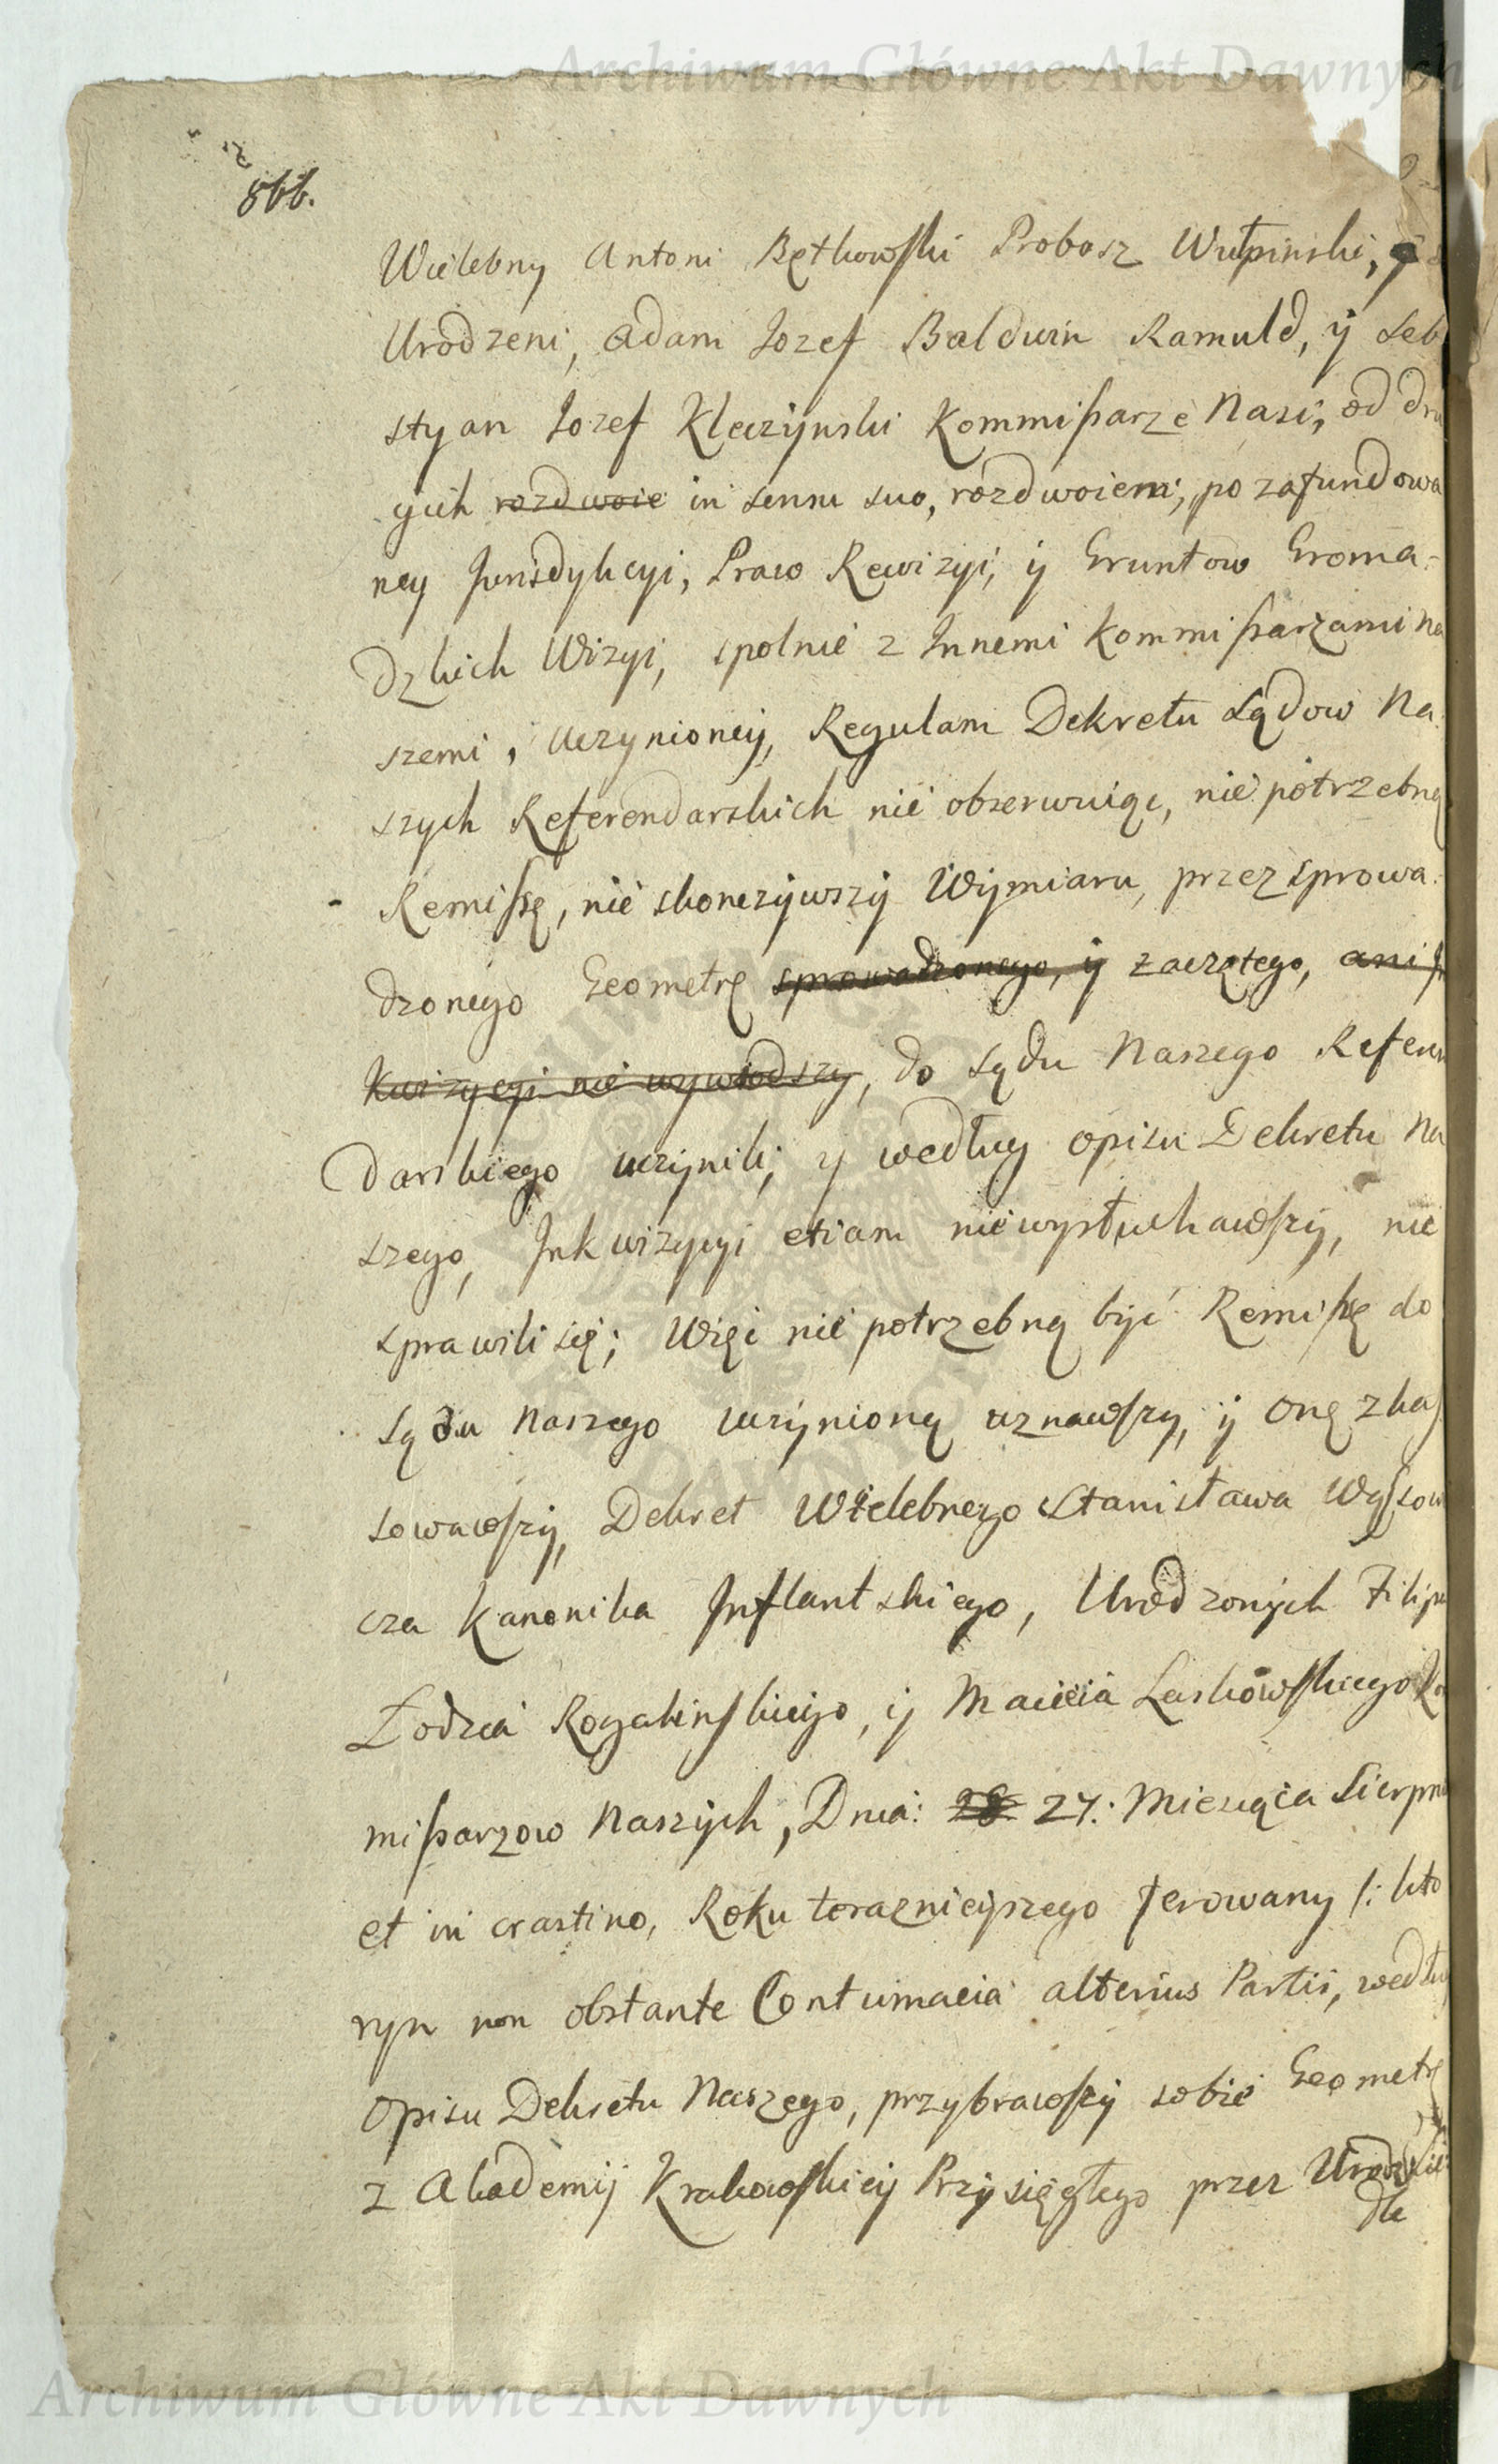 Archiwum Główne Akt Dawnych
866.
Wielebny Antoni Bętkowski Probosz Wulpinski, y
Urodzeni, Adam Jozef Baldwin Ramuld, y Seb
styan Jozef Kleczynski Kommissarze Nasi, od dru
gich rozdwoie in sensu suo, rozdwoieni, po zafundowa
ney Jurisdykcyi, Praw Rewizyi, y Gruntow Groma-
dzkich Wizyi, spolnie z Innemi Kommissarzami Na
szemi, uczynioney, Regulam Dekretu Sądow Na
szych Referendarskich nie obserwuiąc, nie potrzebną
Remissę, nie skonczywszy Wymiaru, przez sprowa-
dzonego Geometrę sprowadzonego, y zaczętego, ani Jn
kwizycyi nie wywiodszy, do Sądu Naszego Referen
darskiego uczynili, y według opisu Dekretu Na
szego, Jnkwizycyi etiam niewysłuchawszy, nie
sprawili się; Więc nie potrzebną być Remissę do
Sądu Naszego uczynioną uznawszy, y onę zkas
sowawszy, Dekret Wielebnego Stanisława Wąsow
cza Kanonika Jnflantskiego, Urodzonych Filipa
Łodzia Rogalinskiego, y Macieia Laskowskiego Kom
missarzow Naszych, Dnia: 28 27: Miesiąca Sierpnia
et in crastino, Roku teraznieyszego ferowany /: kto
ryn non obstante Contumacia alterius Partis, według
opisu Dekretu Naszego, przybrawszy sobie Geometrę
z Akademij Krakowskiey Przysięgłego przez Urodz
dle
Archiwum Główne Akt Dawnych